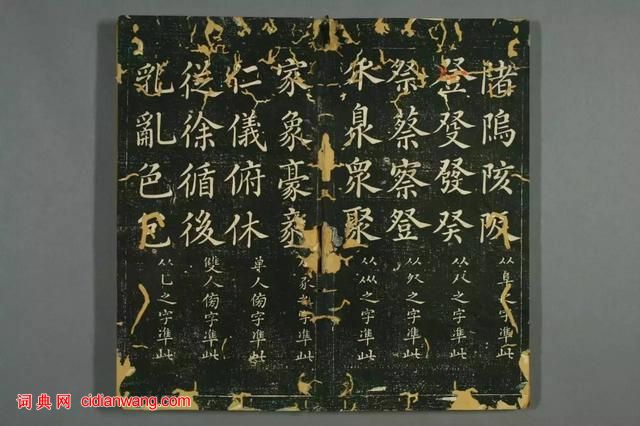 陼隖陔阪 从阜之字準此
登癹發癸 从癶之字準此
祭蔡察登 从癶之字準此
乑臮眾聚 从乑之字準此
家象豪 豕之字準此
仁儀俯休 單人傍字準此
従徐循後 雙人傍字準此
乱亂色 从乚之字準此
词典网 cidianwang.com